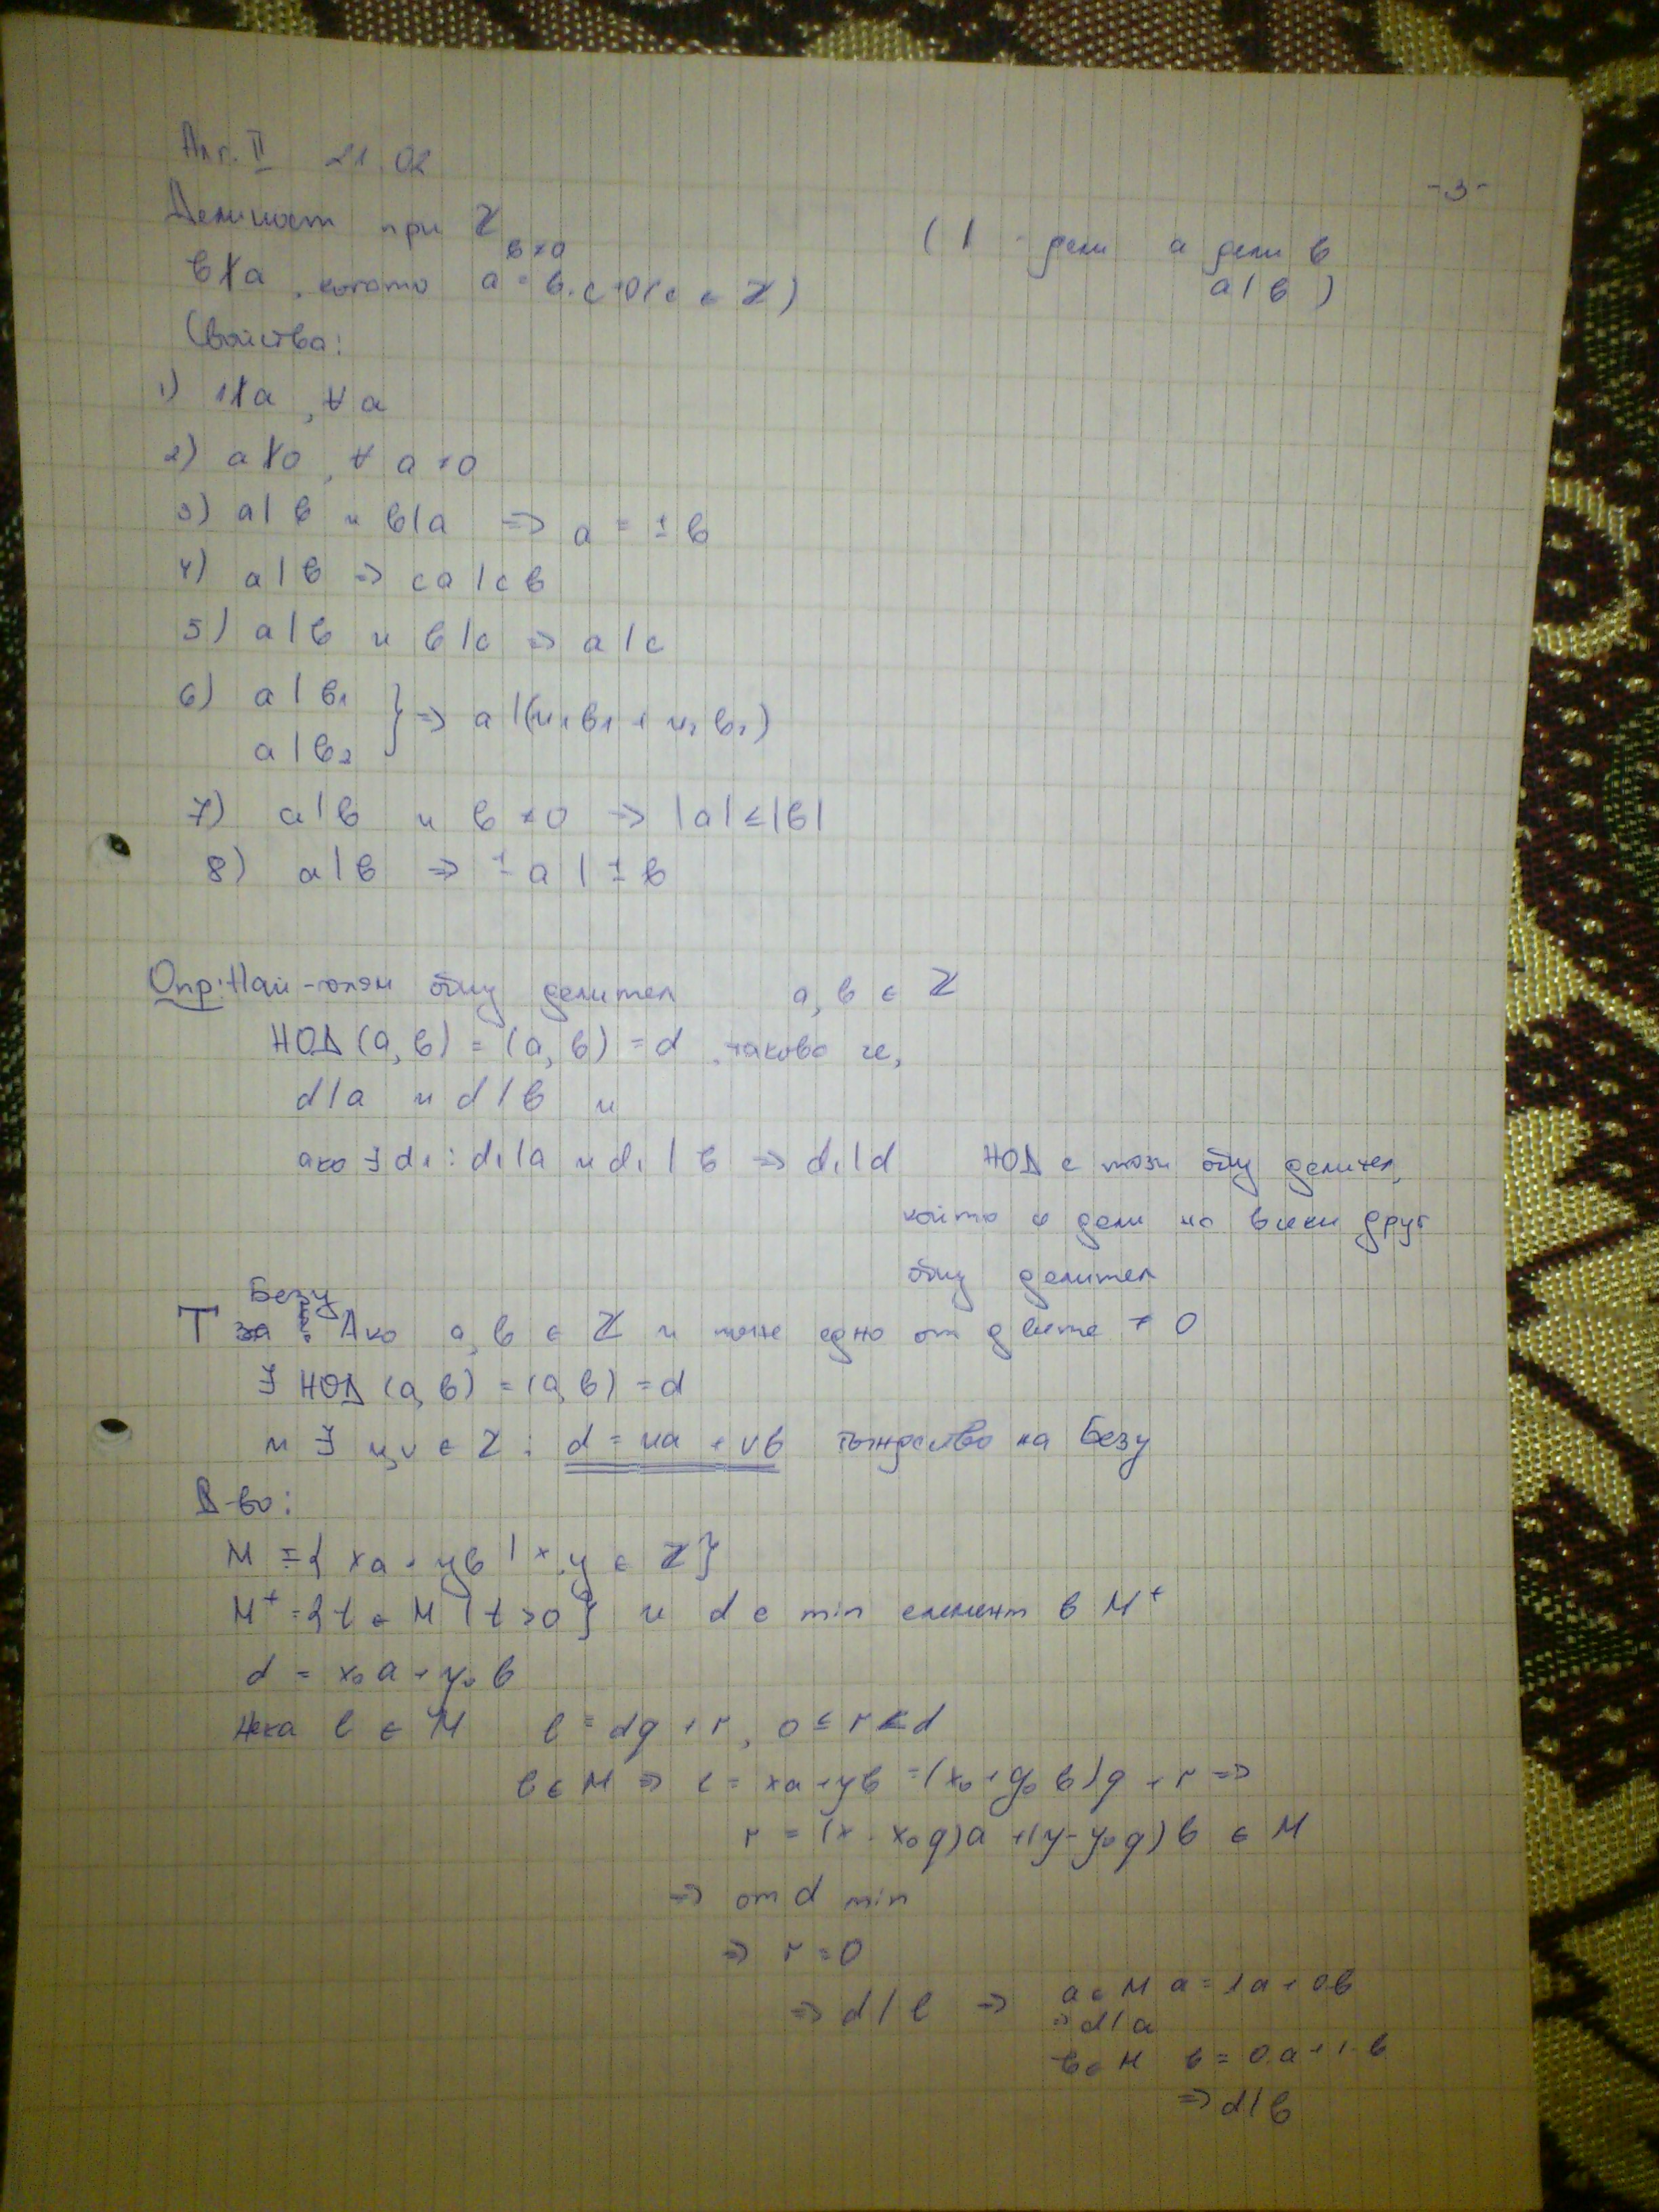 Алг. II 21.02
-3-
Делимост при ℤ
( | - дели a дели b
b≠0
b∤a, когато a = b.c+0 (c ∈ ℤ)
a | b )
Свойства:
1) 1∤a, ∀ a
2) a∤0, ∀ a ≠ 0
3) a | b и b | a => a = ± b
4) a | b => ca | cb
5) a | b и b | c => a | c
6) a | b₁
a | b₂ } => a | (u₁b₁ + u₂b₂)
7) a | b и b ≠ 0 => |a| ≤ |b|
8) a | b => ± a | ± b
Опр: Най-голям общ делител a, b ∈ ℤ
НОД (a, b) = (a, b) = d, такова че,
d | a и d | b и
ако ∃ d₁ : d₁ | a и d₁ | b => d₁ | d НОД е този общ делител,
който се дели на всеки друг
общ делител
Безу
Т за : Ако a, b ∈ ℤ и поне едно от двете ≠ 0
∃ НОД (a, b) = (a, b) = d
и ∃ u, v ∈ ℤ : d = ua + vb тъждество на Безу
Д-во:
M = { xa + yb | x, y ∈ ℤ}
M⁺ = {t ∈ M | t > 0} и d е min елемент в M⁺
d = x₀a + y₀b
Нека l ∈ M l = dq + r, 0 ≤ r < d
l ∈ M => l = xa + yb = (x₀ + y₀b)q + r =>
r = (x - x₀q)a + (y - y₀q)b ∈ M
=> от d min
=> r = 0
=> d | l => a ∈ M a = 1a + 0b
=> d | a
b ∈ M b = 0.a + 1.b
=> d | b